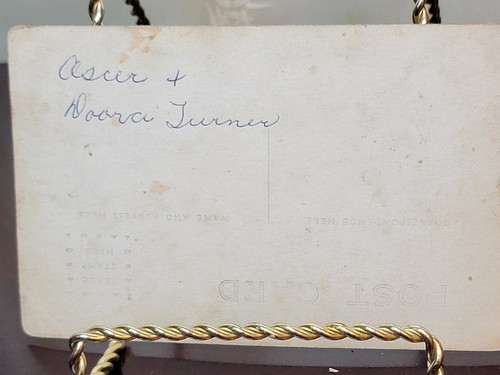 Ascer +
Doora Turner
CORRESPONDENCE HERE
NAME AND ADDRESS HERE
PLACE
STAMP
HERE
POST CARD